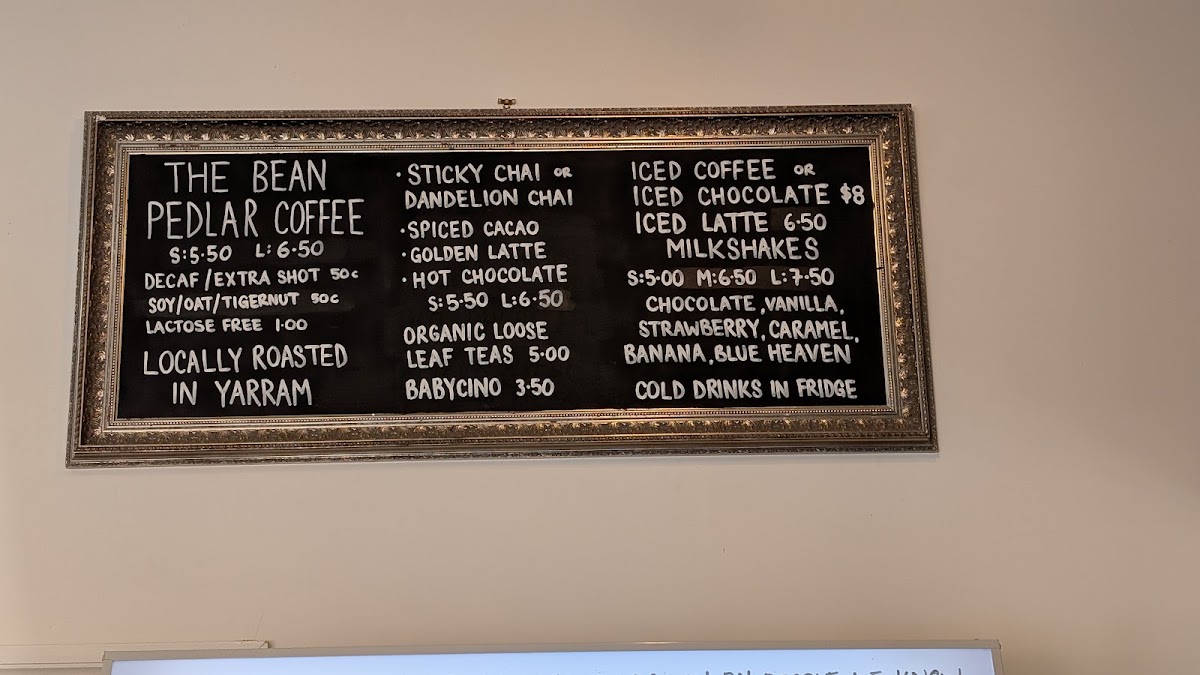 THE BEAN
PEDLAR COFFEE
S:5.50 L:6.50
DECAF/EXTRA SHOT 50c
SOY/OAT/TIGERNUT 50c
LACTOSE FREE 1.00
LOCALLY ROASTED
IN YARRAM
• STICKY CHAI OR
DANDELION CHAI
• SPICED CACAO
• GOLDEN LATTE
• HOT CHOCOLATE
S:5.50 L:6.50
ORGANIC LOOSE
LEAF TEAS 5.00
BABYCINO 3.50
ICED COFFEE OR
ICED CHOCOLATE $8
ICED LATTE 6.50
MILKSHAKES
S:5.00 M:6.50 L:7.50
CHOCOLATE, VANILLA,
STRAWBERRY, CARAMEL,
BANANA, BLUE HEAVEN
COLD DRINKS IN FRIDGE